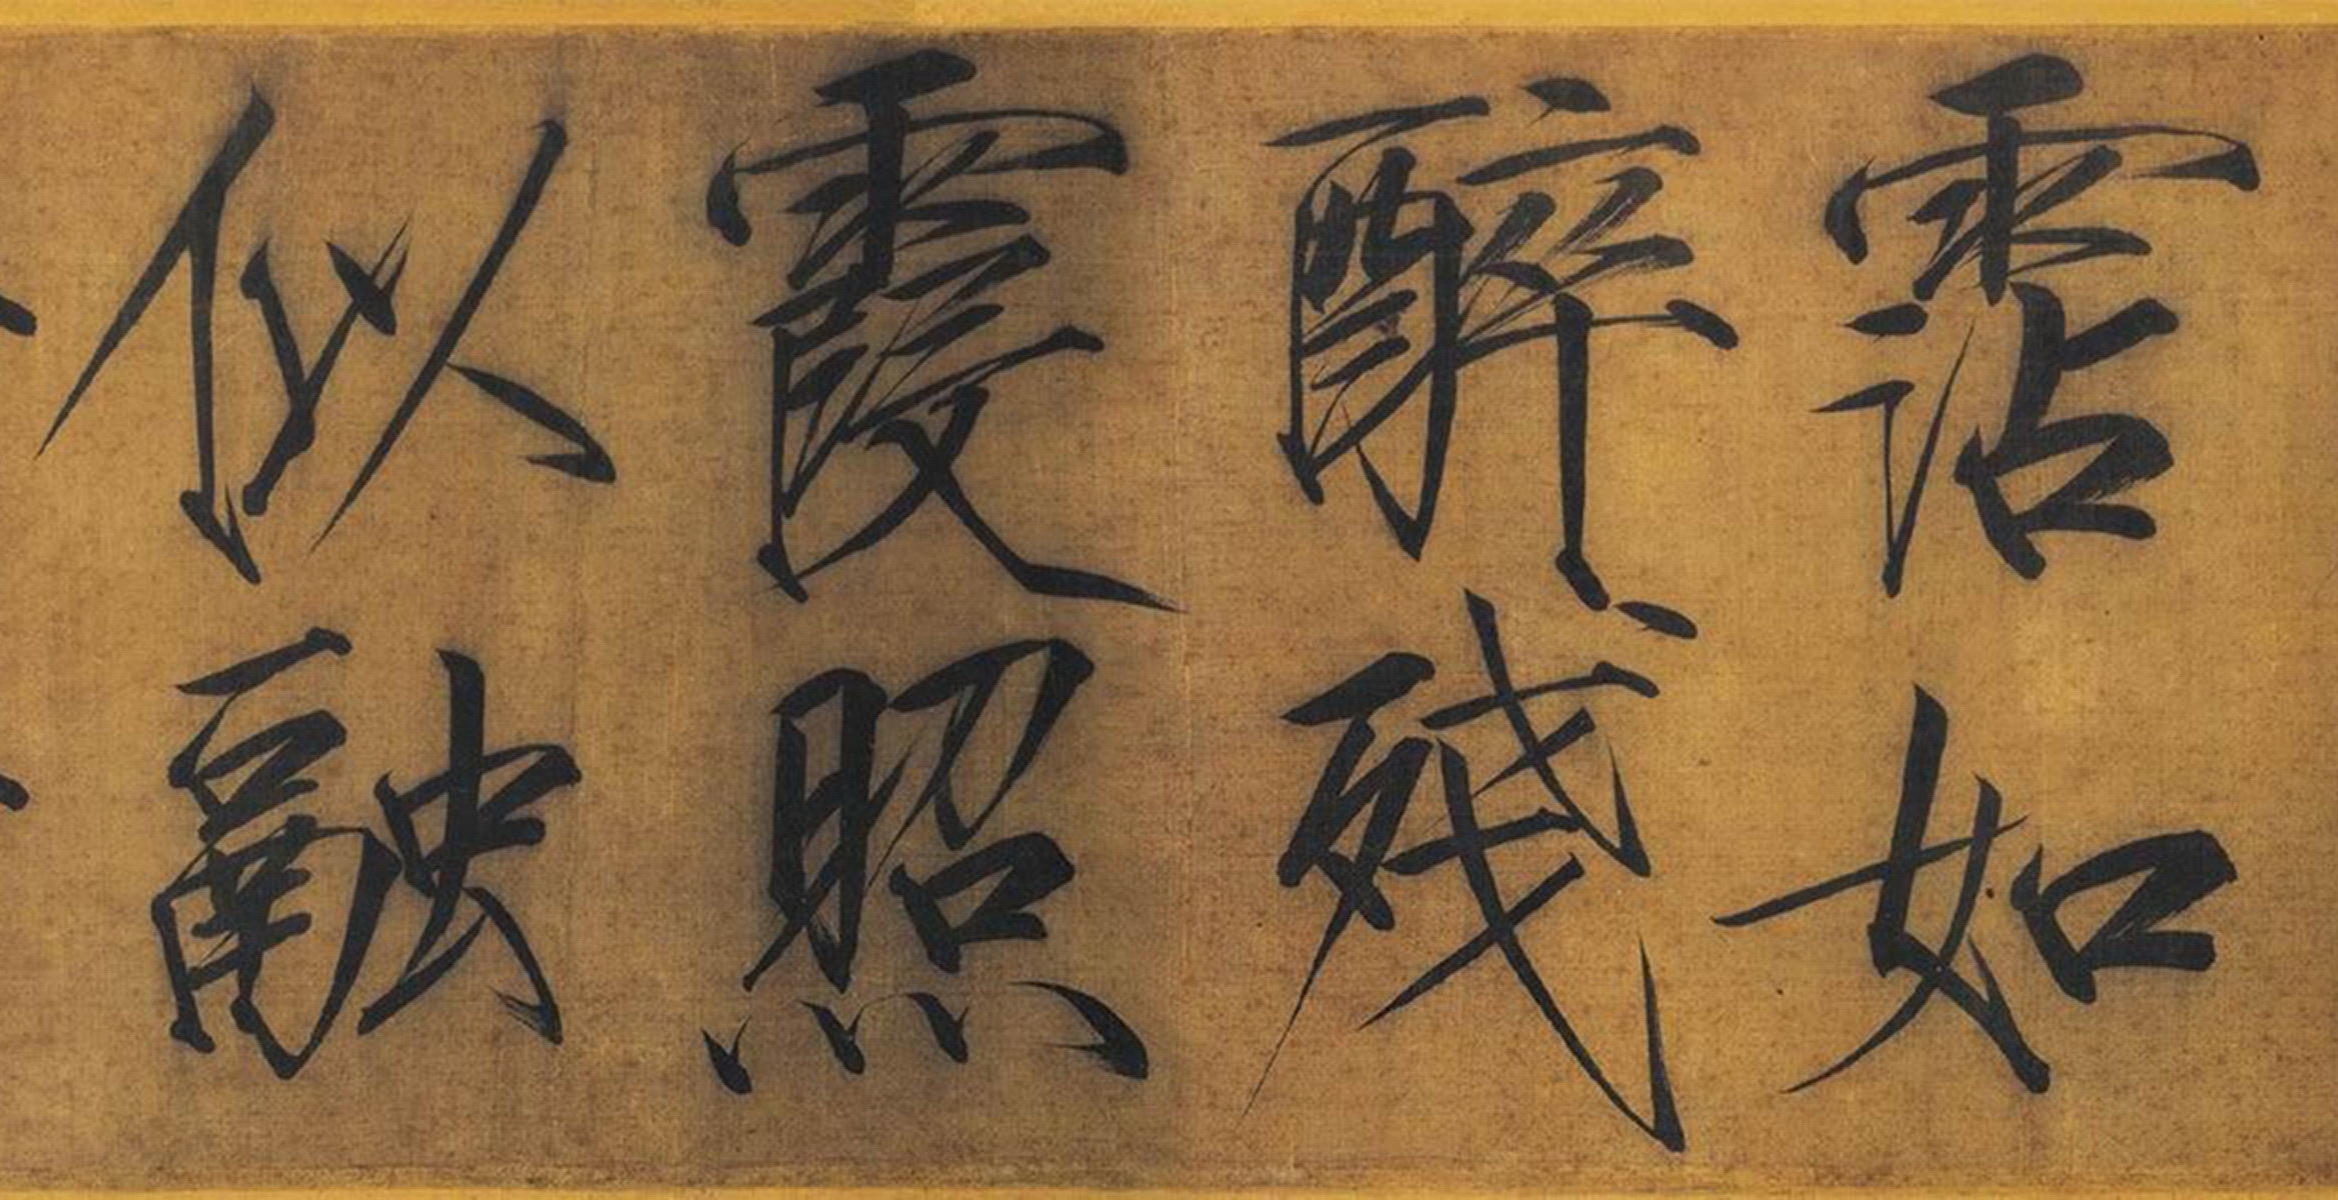 霑如
醉殘
霞照
似融